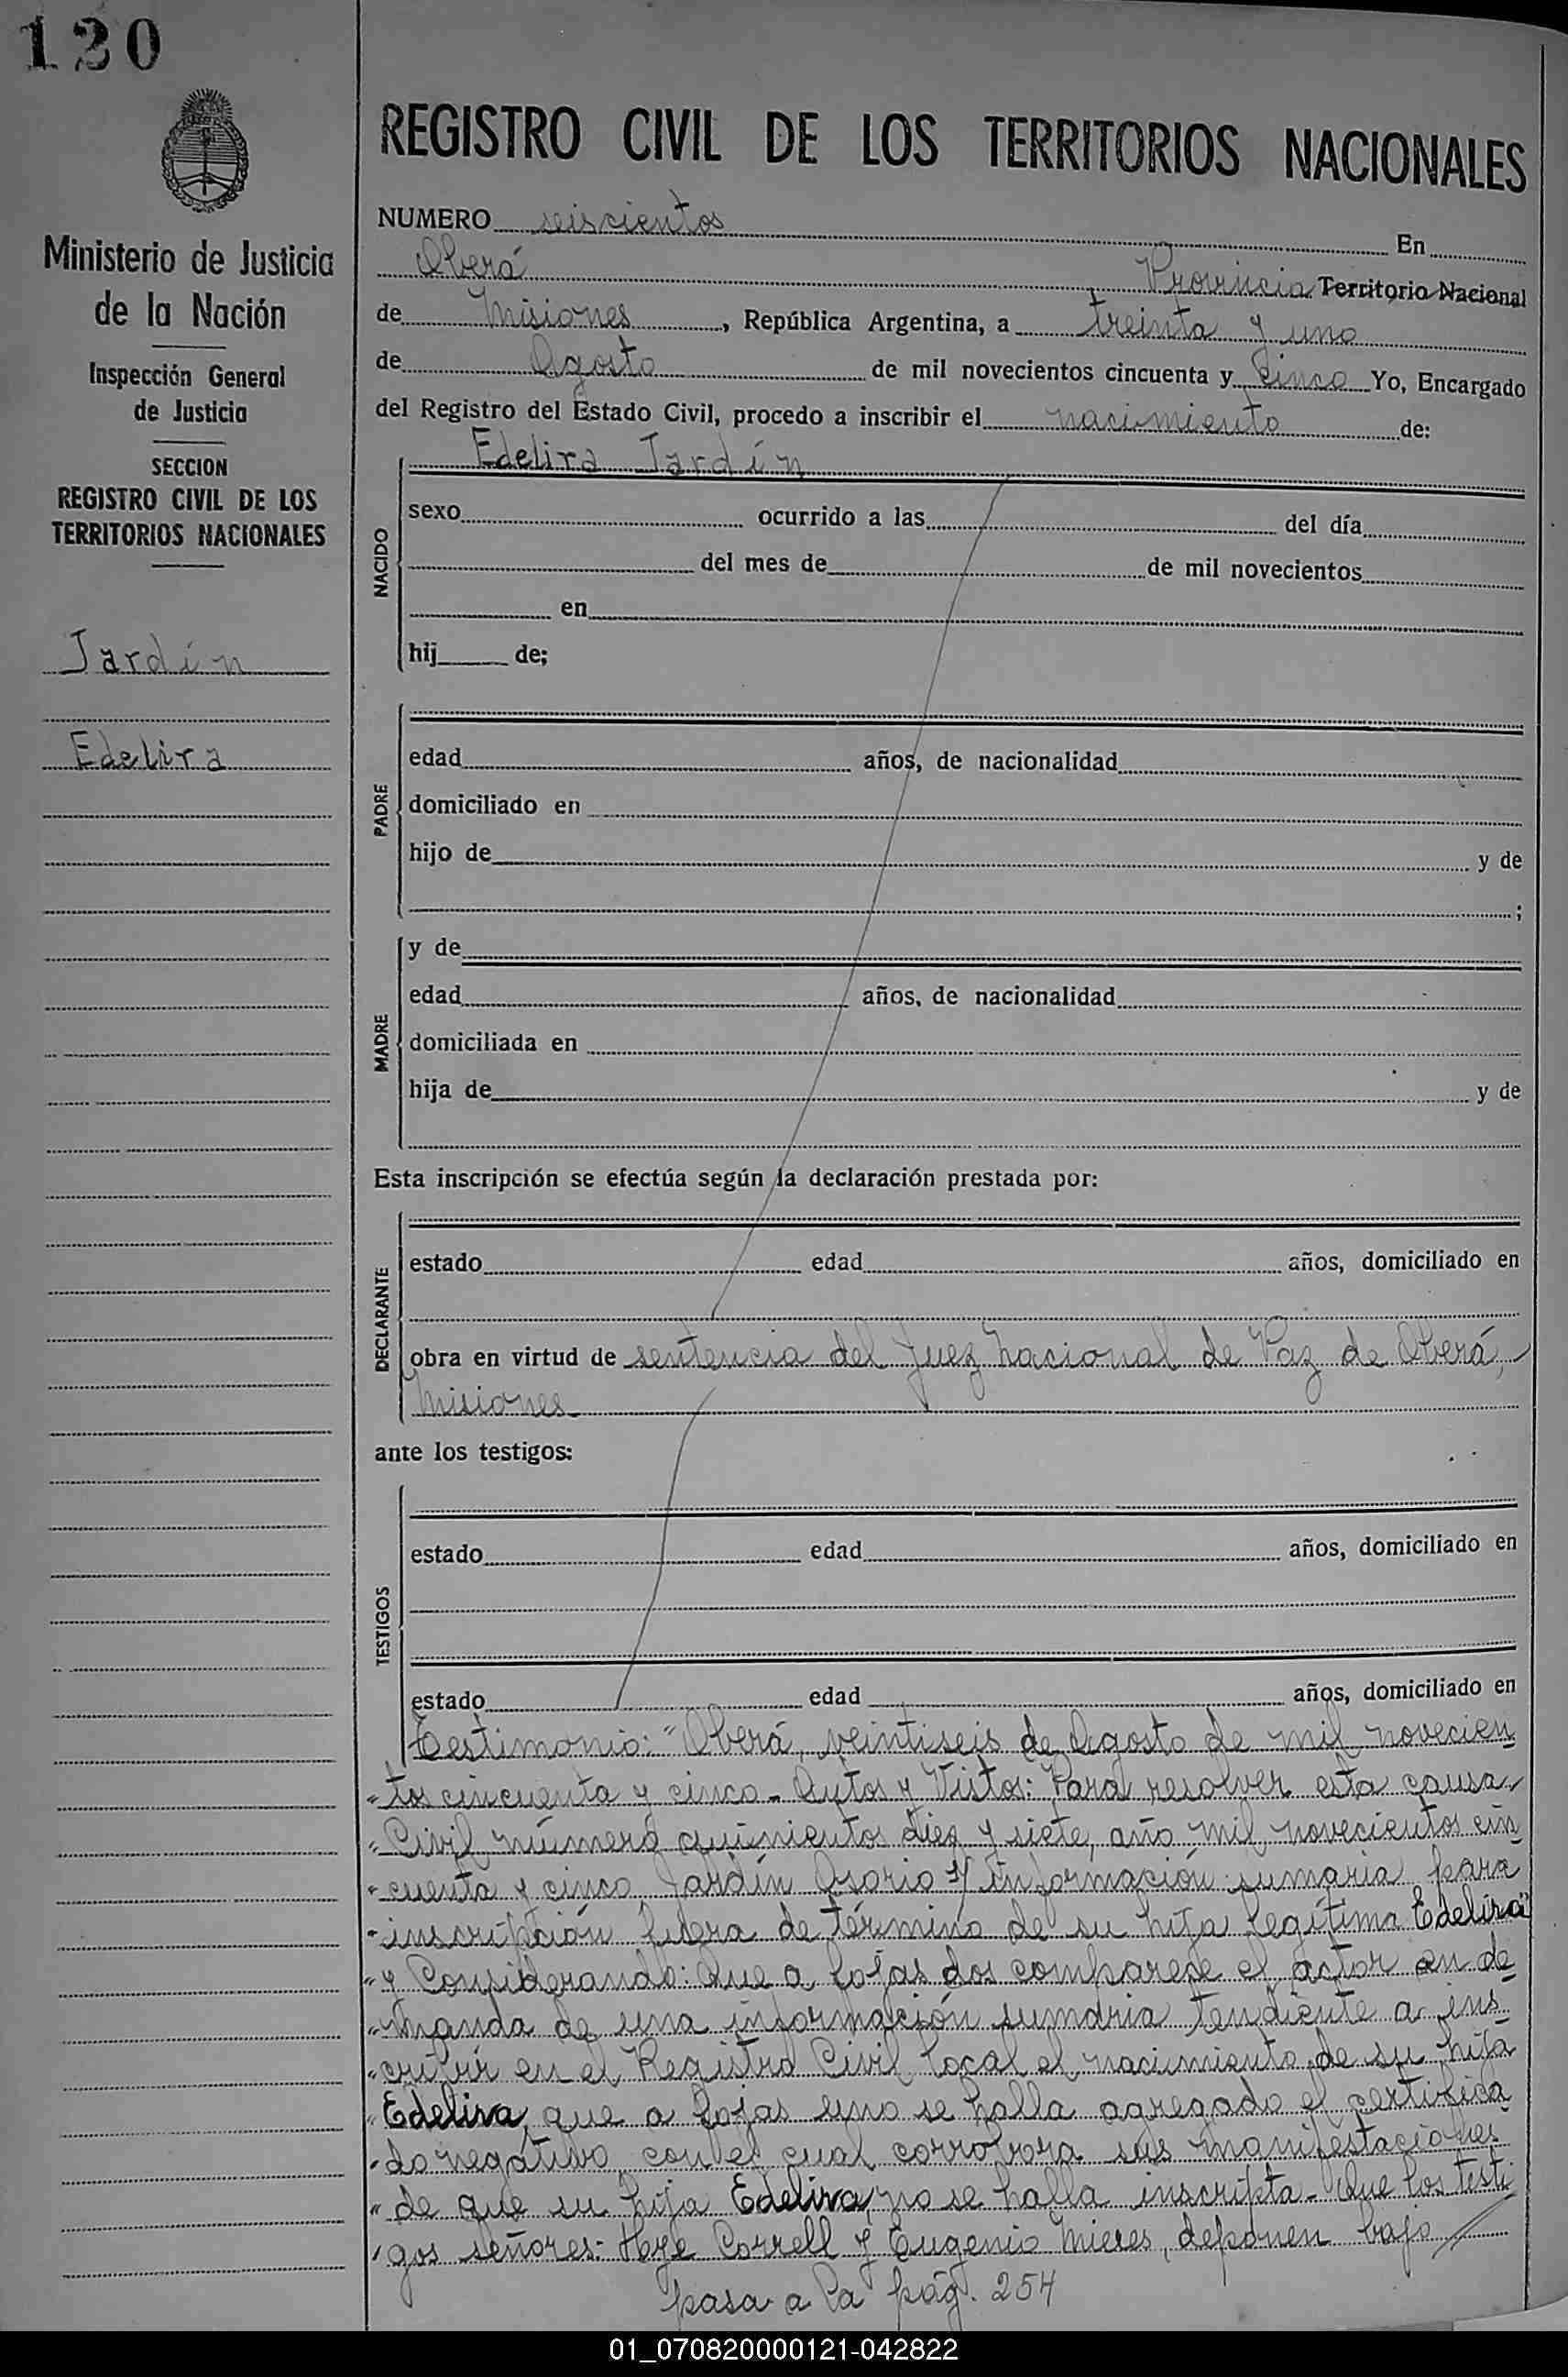 120
Ministerio de Justicia
de la Nación
Inspección General
de Justicia
SECCION
REGISTRO CIVIL DE LOS
TERRITORIOS NACIONALES
Jardín
Edelira
REGISTRO CIVIL DE LOS TERRITORIOS NACIONALES
NUMERO seiscientos En
Oberá Provincia Territorio Nacional
de Misiones, República Argentina, a treinta y uno
de Agosto de mil novecientos cincuenta y cinco Yo, Encargado
del Registro del Estado Civil, procedo a inscribir el nacimiento de:
Edelira Jardín
NACIDO
sexo ocurrido a las del día
del mes de de mil novecientos
en
hij de;
PADRE
edad años, de nacionalidad
domiciliado en
hijo de y de
;
MADRE
y de
edad años, de nacionalidad
domiciliada en
hija de y de
Esta inscripción se efectúa según la declaración prestada por:
DECLARANTE
estado edad años, domiciliado en
obra en virtud de sentencia del Juez Nacional de Paz de Oberá,
Misiones
ante los testigos:
TESTIGOS
estado edad años, domiciliado en
estado edad años, domiciliado en
Testimonio: "Oberá, veintiseis de Agosto de mil novecien
"tos cincuenta y cinco- Autos y Vistos: Para resolver esta causa
"Civil número quinientos diez y siete, año mil novecientos cin
"cuenta y cinco Jardín Osorio s/ información sumaria para
"inscripción fuera de término de su hija legítima Edelira"
"y Considerando: Que a fojas dos comparece el actor en de
"manda de una información sumaria tendiente a ins
"cribir en el Registro Civil local el nacimiento de su hija
"Edelira, que a fojas uno se halla agregado el certifica
"do negativo con el cual corrobora sus manifestaciones
"de que su hija Edelira, no se halla inscripta- Que los testi
"gos señores: Correll y Eugenio Mieres, deponen bajo
pasa a la pág. 254
01_070820000121-042822